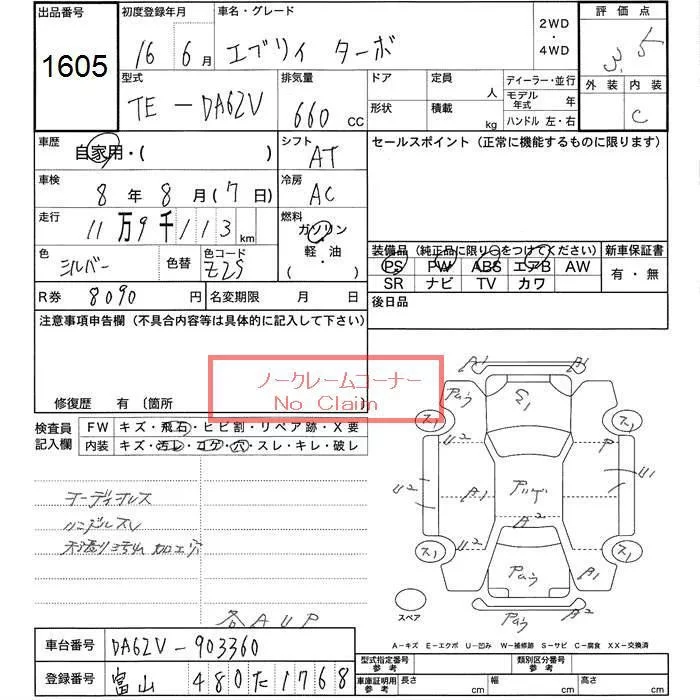 出品番号 初度登録年月 車名・グレード 2WD・4WD 評価点
1605 16 6月 エブリイ ターボ 3.5
外装 内装
C
型式 排気量 ドア 定員 人 ディーラー・並行
TE-DA62V 660 CC 形状 積載 kg モデル年式 年
ハンドル 左・右
車歴 自家用・( ) シフト AT セールスポイント (正常に機能するものに限ります)
車検 8年8月(7日) 冷房 AC
走行 11万9千113km 燃料 ガソリン・軽・油 ( )
色 シルバー 色替 色コード Z2S
装備品 (純正品に限り○をつけてください) 新車保証書
PS PW ABS エアB AW 有・無
SR ナビ TV カワ
R券 8090円 名変期限 月 日 後日品
注意事項申告欄 (不具合内容等は具体的に記入して下さい)
ノークレームコーナー
No Claim
修復歴 有 〔箇所
検査員記入欄 FW キズ・飛石・ヒビ割・リペア跡・X要
内装 キズ・汚レ・コゲ・穴・スレ・キレ・破レ
オーディオレス
ハンドルスレ
天張り 加工穴
各AUP
A1 A1
Pムラ E1
ス1 ス1
U2 P
U2 A1 U1
A2
U2 A1
ス1 ス1
Pムラ
Pムラ A2
スペア
A-キズ E-エクボ U-凹み W-補修跡 S-サビ C-腐食 XX-交換済
車台番号 DA62V-903360
登録番号 富山 480 た 1768
型式指定番号 参考 類別区分番号 参考
車庫証明用 参考 長さ cm 幅 cm 高さ cm